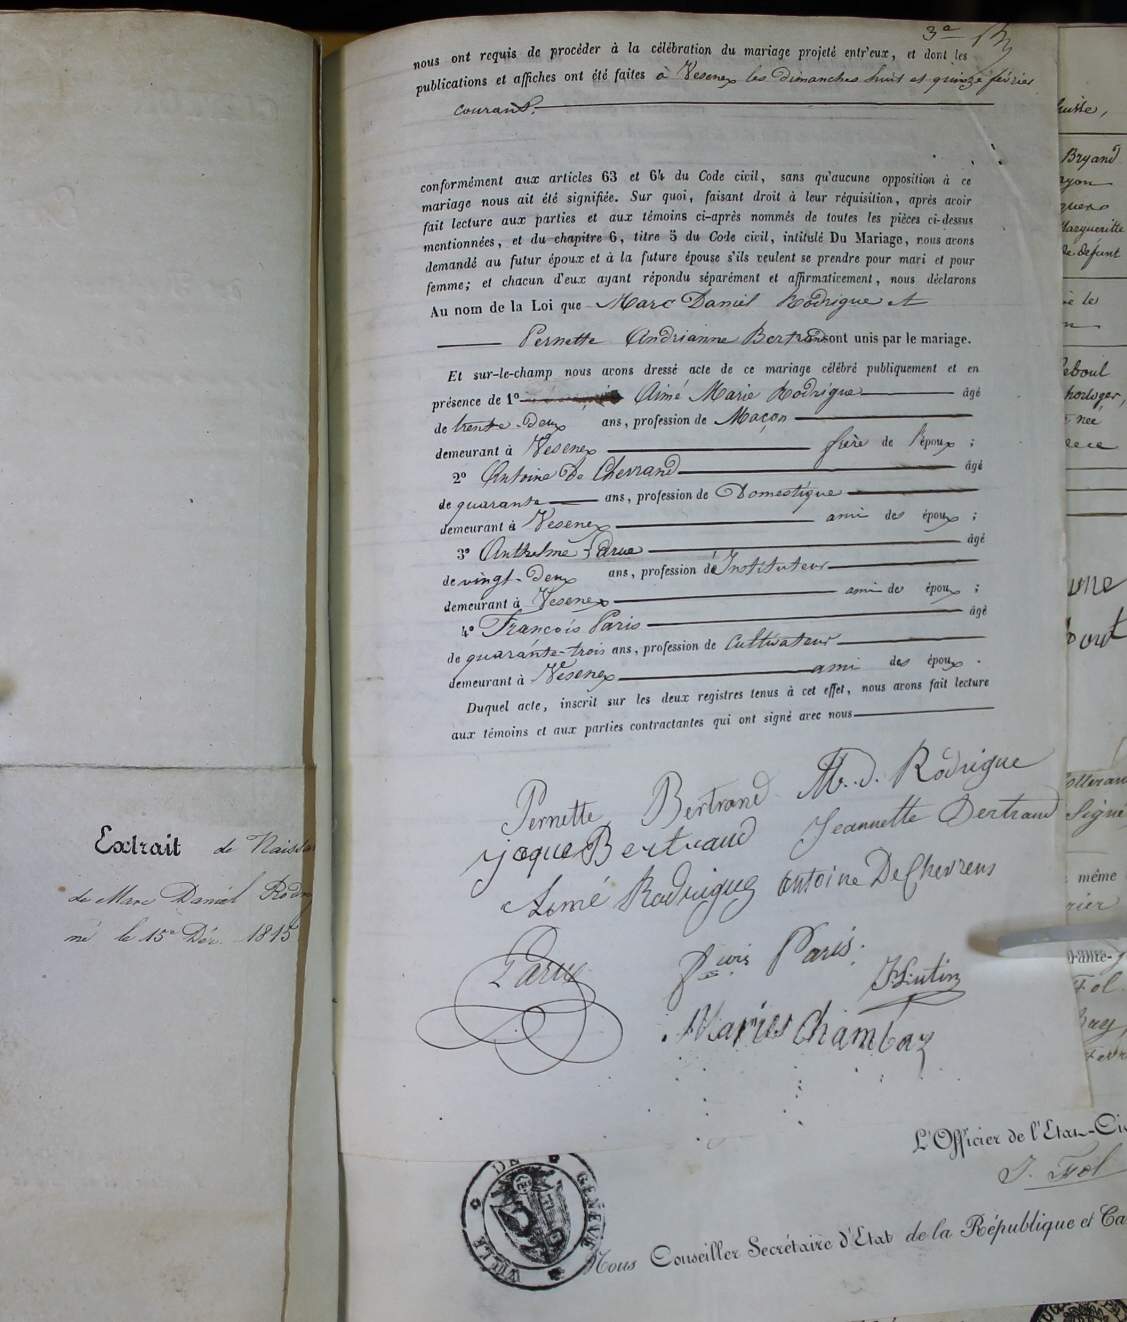 3e
nous ont requis de procéder à la célébration du mariage projeté entr'eux, et dont les
publications et affiches ont été faites à Vesenex les dimanches huit et quinze février
courant.
conformément aux articles 63 et 64 du Code civil, sans qu'aucune opposition à ce
mariage nous ait été signifiée. Sur quoi, faisant droit à leur réquisition, après avoir
fait lecture aux parties et aux témoins ci-après nommés de toutes les pièces ci-dessus
mentionnées, et du chapitre 6, titre 5 du Code civil, intitulé Du Mariage, nous avons
demandé au futur époux et à la future épouse s'ils veulent se prendre pour mari et pour
femme; et chacun d'eux ayant répondu séparément et affirmativement, nous déclarons
Au nom de la Loi que Marc Daniel Rodrigue et
Pernette Andrianne Bertrand sont unis par le mariage.
Et sur-le-champ nous avons dressé acte de ce mariage célébré publiquement et en
présence de 1° Aimé Marie Rodrigue âgé
de trente-deux ans, profession de Maçon
demeurant à Vesenex frère de l'époux ;
2° Antoine De Chevrand âgé
de quarante ans, profession de Domestique
demeurant à Vesenex ami des époux ;
3° Anthelme Larue âgé
de vingt-deux ans, profession d'Instituteur
demeurant à Vesenex ami des époux ;
4° François Paris âgé
de quarante-trois ans, profession de Cultivateur
demeurant à Vesenex ami des époux .
Duquel acte, inscrit sur les deux registres tenus à cet effet, nous avons fait lecture
aux témoins et aux parties contractantes qui ont signé avec nous
Pernette Bertrand M. d. Rodrigue
jaque Bertrand Jeannette Bertrand
Aimé Rodrigue Antoine DeChevrens
Larue fcois Paris.
Maries Chambaz
Extrait de Naissa
de Marc Daniel Rodri
né le 15e Déc. 1815
L'Officier de l'Etat-Ci
J. Fol
VILLE DE GENEVE
Nous Conseiller Secrétaire d'Etat de la République et Ca
Bryand
Marguerite
défunt
horloger,
née
Signé
même
Fol.